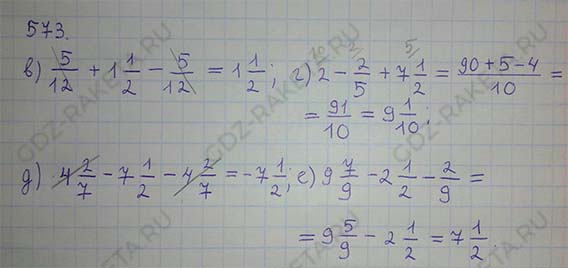 573.
в) 5/12 + 1 1/2 − 5/12 = 1 1/2; г) 2 − 2/5 + 7 1/2 = (90 + 5 − 4)/10 =
= 91/10 = 9 1/10;
д) 4 2/7 − 7 1/2 − 4 2/7 = −7 1/2; е) 9 7/9 − 2 1/2 − 2/9 =
= 9 5/9 − 2 1/2 = 7 1/2.
GDZ-RAKETA.RU